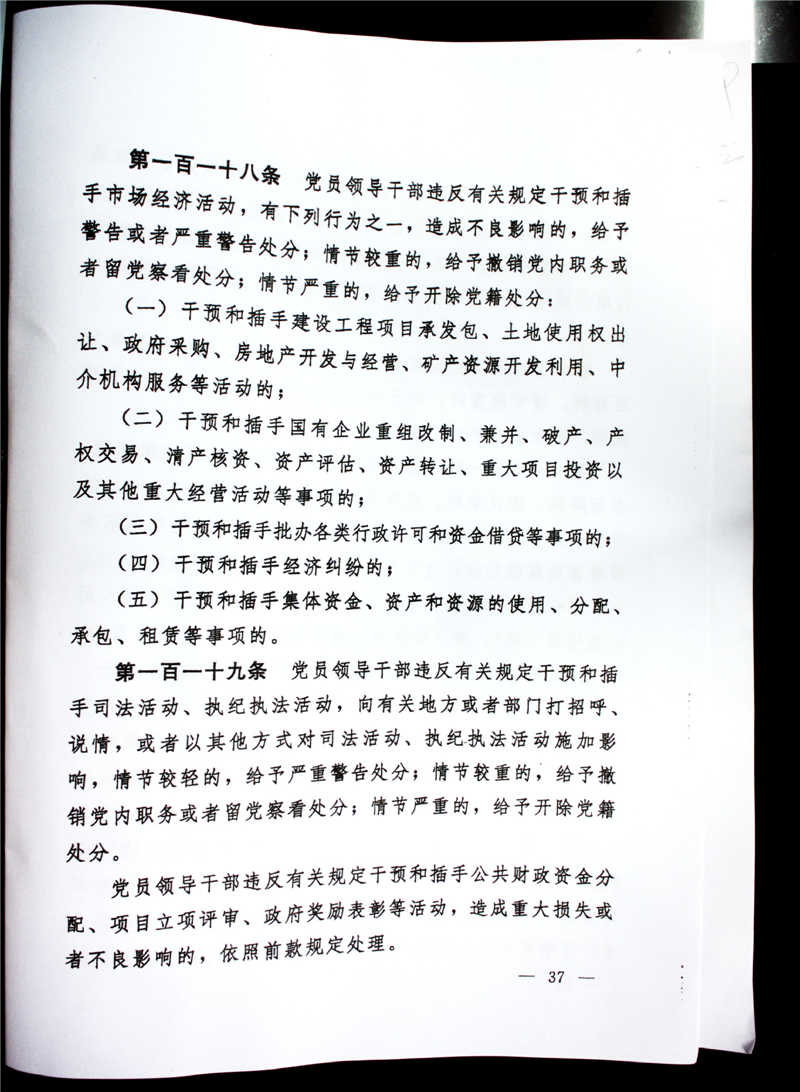 第一百一十八条 党员领导干部违反有关规定干预和插
手市场经济活动，有下列行为之一，造成不良影响的，给予
警告或者严重警告处分；情节较重的，给予撤销党内职务或
者留党察看处分；情节严重的，给予开除党籍处分：
（一）干预和插手建设工程项目承发包、土地使用权出
让、政府采购、房地产开发与经营、矿产资源开发利用、中
介机构服务等活动的；
（二）干预和插手国有企业重组改制、兼并、破产、产
权交易、清产核资、资产评估、资产转让、重大项目投资以
及其他重大经营活动等事项的；
（三）干预和插手批办各类行政许可和资金借贷等事项的；
（四）干预和插手经济纠纷的；
（五）干预和插手集体资金、资产和资源的使用、分配、
承包、租赁等事项的。
第一百一十九条 党员领导干部违反有关规定干预和插
手司法活动、执纪执法活动，向有关地方或者部门打招呼、
说情，或者以其他方式对司法活动、执纪执法活动施加影
响，情节较轻的，给予严重警告处分；情节较重的，给予撤
销党内职务或者留党察看处分；情节严重的，给予开除党籍
处分。
党员领导干部违反有关规定干预和插手公共财政资金分
配、项目立项评审、政府奖励表彰等活动，造成重大损失或
者不良影响的，依照前款规定处理。
— 37 —